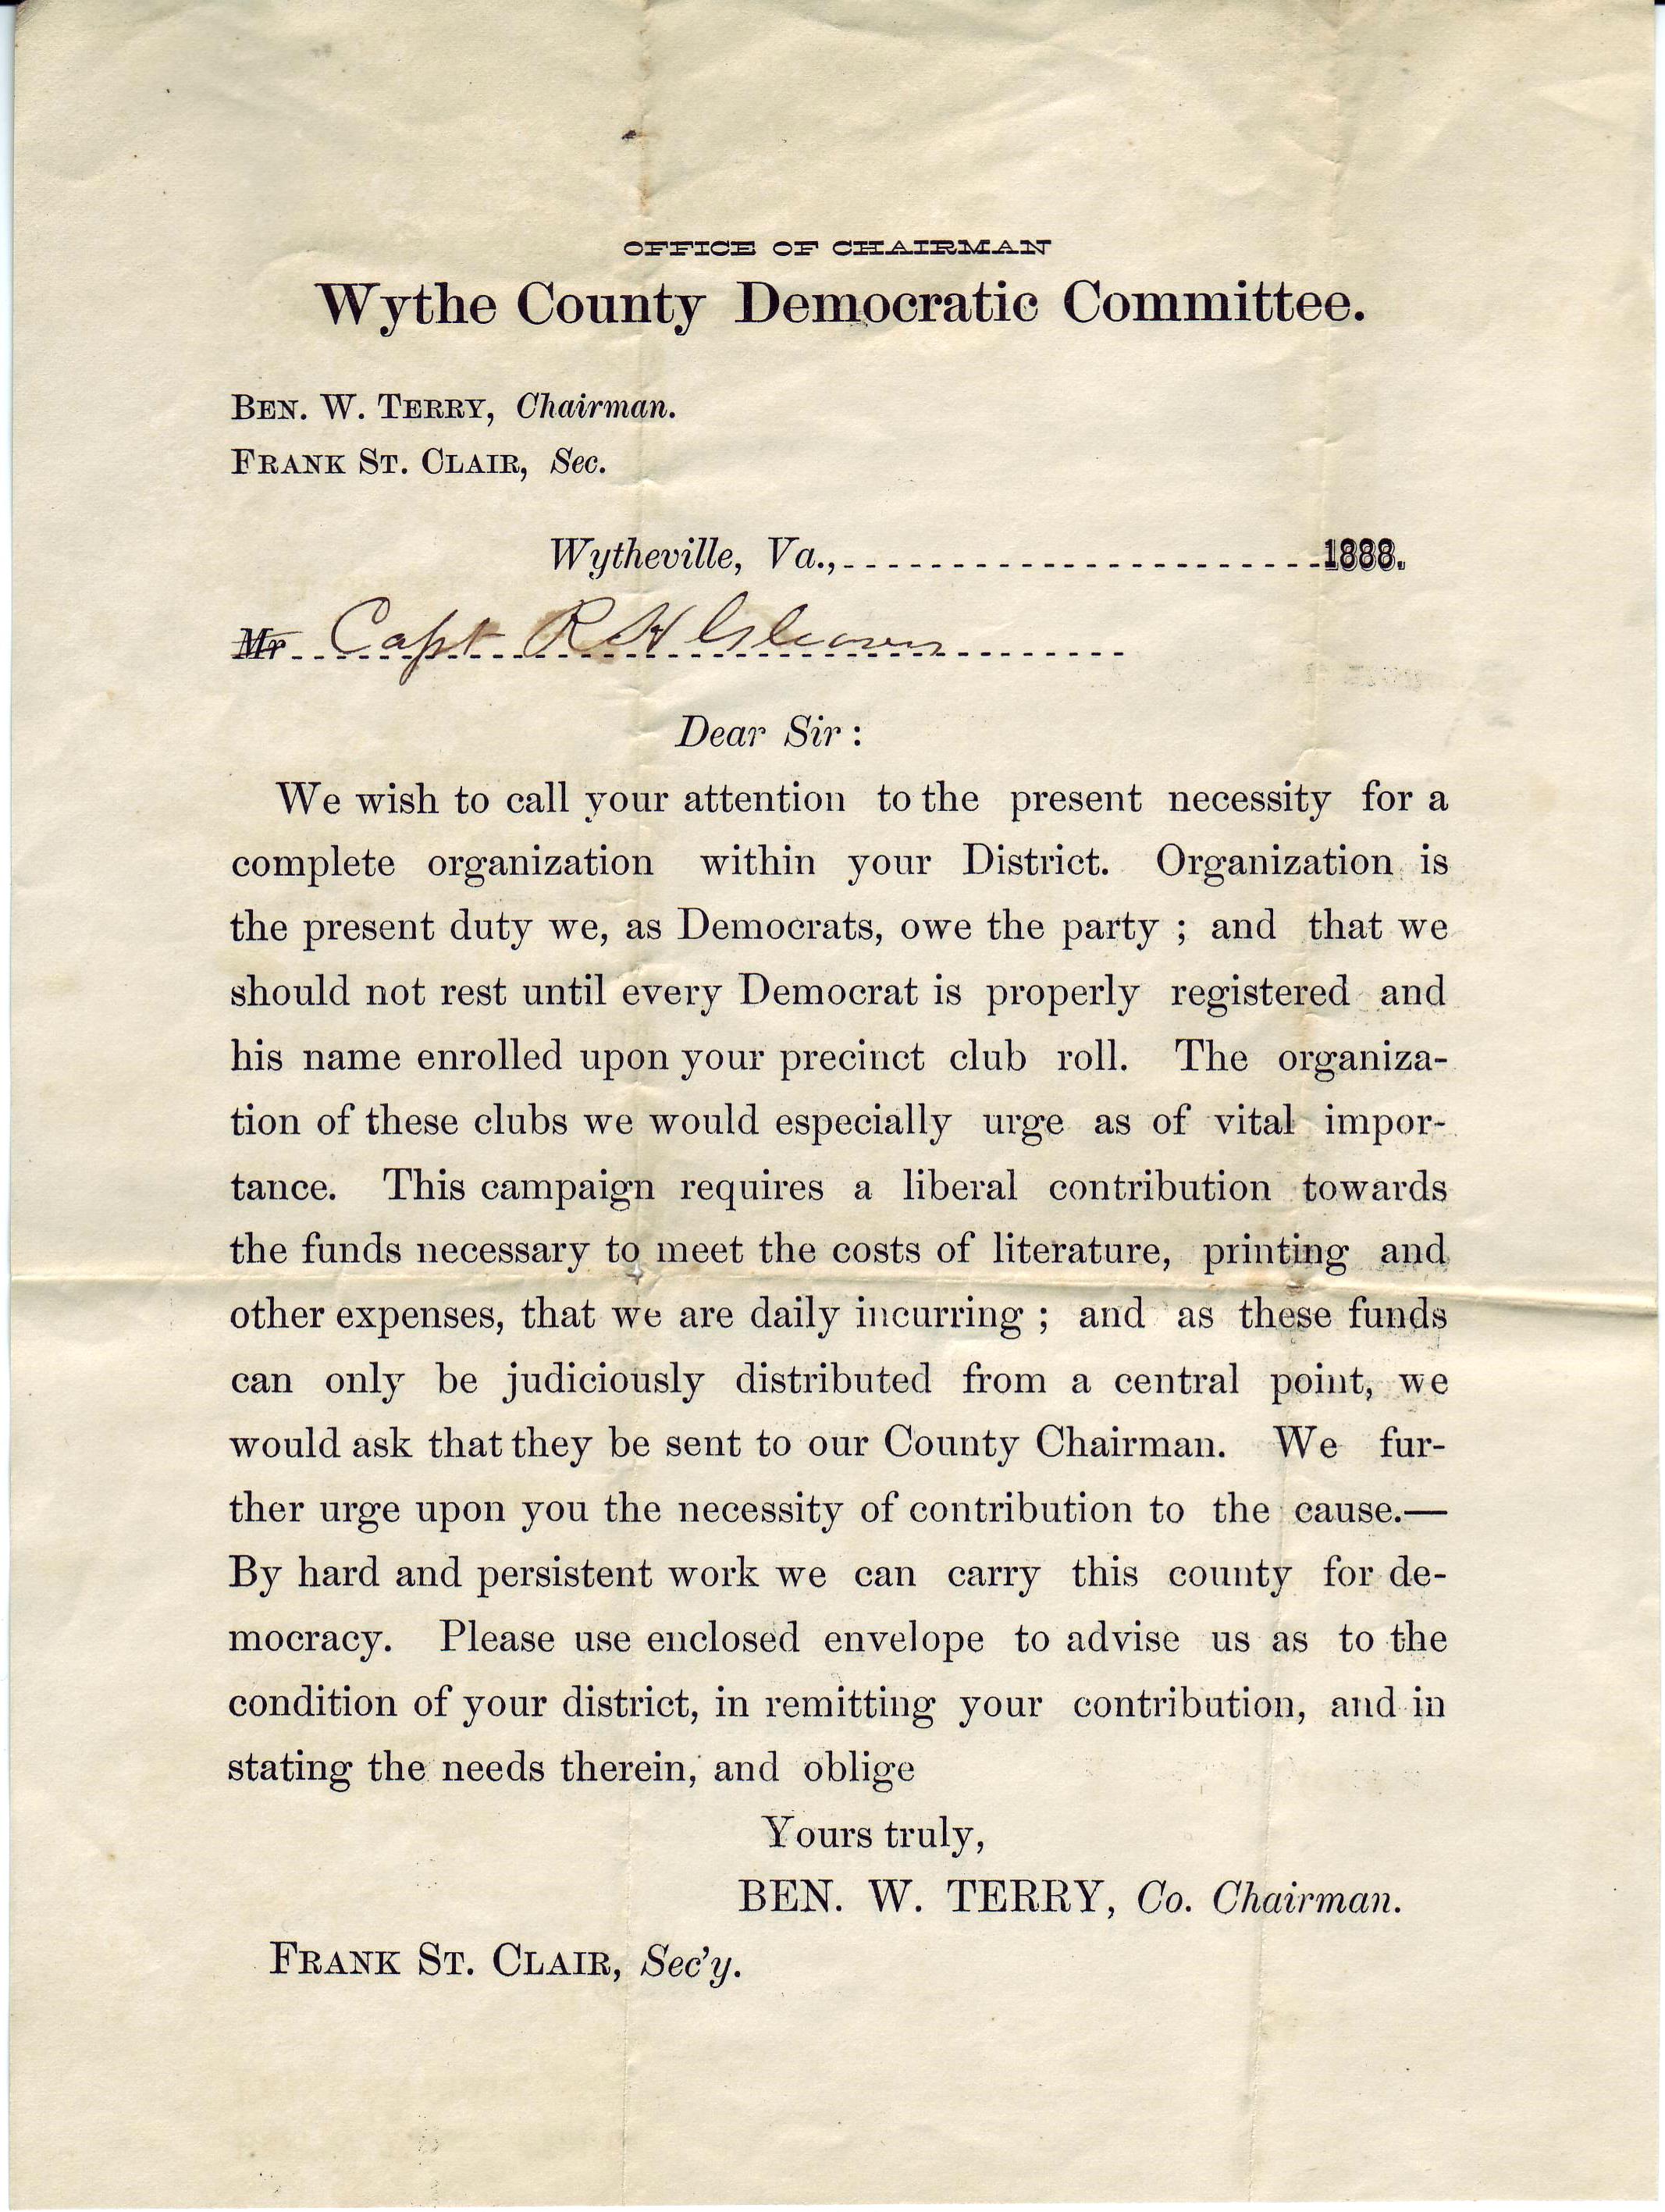 OFFICE OF CHAIRMAN
Wythe County Democratic Committee.
BEN. W. TERRY, Chairman.
FRANK ST. CLAIR, Sec.
Wytheville, Va.,----------------------1888.
Mr Capt R H Gleaves
Dear Sir :
We wish to call your attention to the present necessity for a
complete organization within your District. Organization is
the present duty we, as Democrats, owe the party ; and that we
should not rest until every Democrat is properly registered and
his name enrolled upon your precinct club roll. The organiza-
tion of these clubs we would especially urge as of vital impor-
tance. This campaign requires a liberal contribution towards
the funds necessary to meet the costs of literature, printing and
other expenses, that we are daily incurring ; and as these funds
can only be judiciously distributed from a central point, we
would ask that they be sent to our County Chairman. We fur-
ther urge upon you the necessity of contribution to the cause.—
By hard and persistent work we can carry this county for de-
mocracy. Please use enclosed envelope to advise us as to the
condition of your district, in remitting your contribution, and in
stating the needs therein, and oblige
Yours truly,
BEN. W. TERRY, Co. Chairman.
FRANK ST. CLAIR, Sec'y.